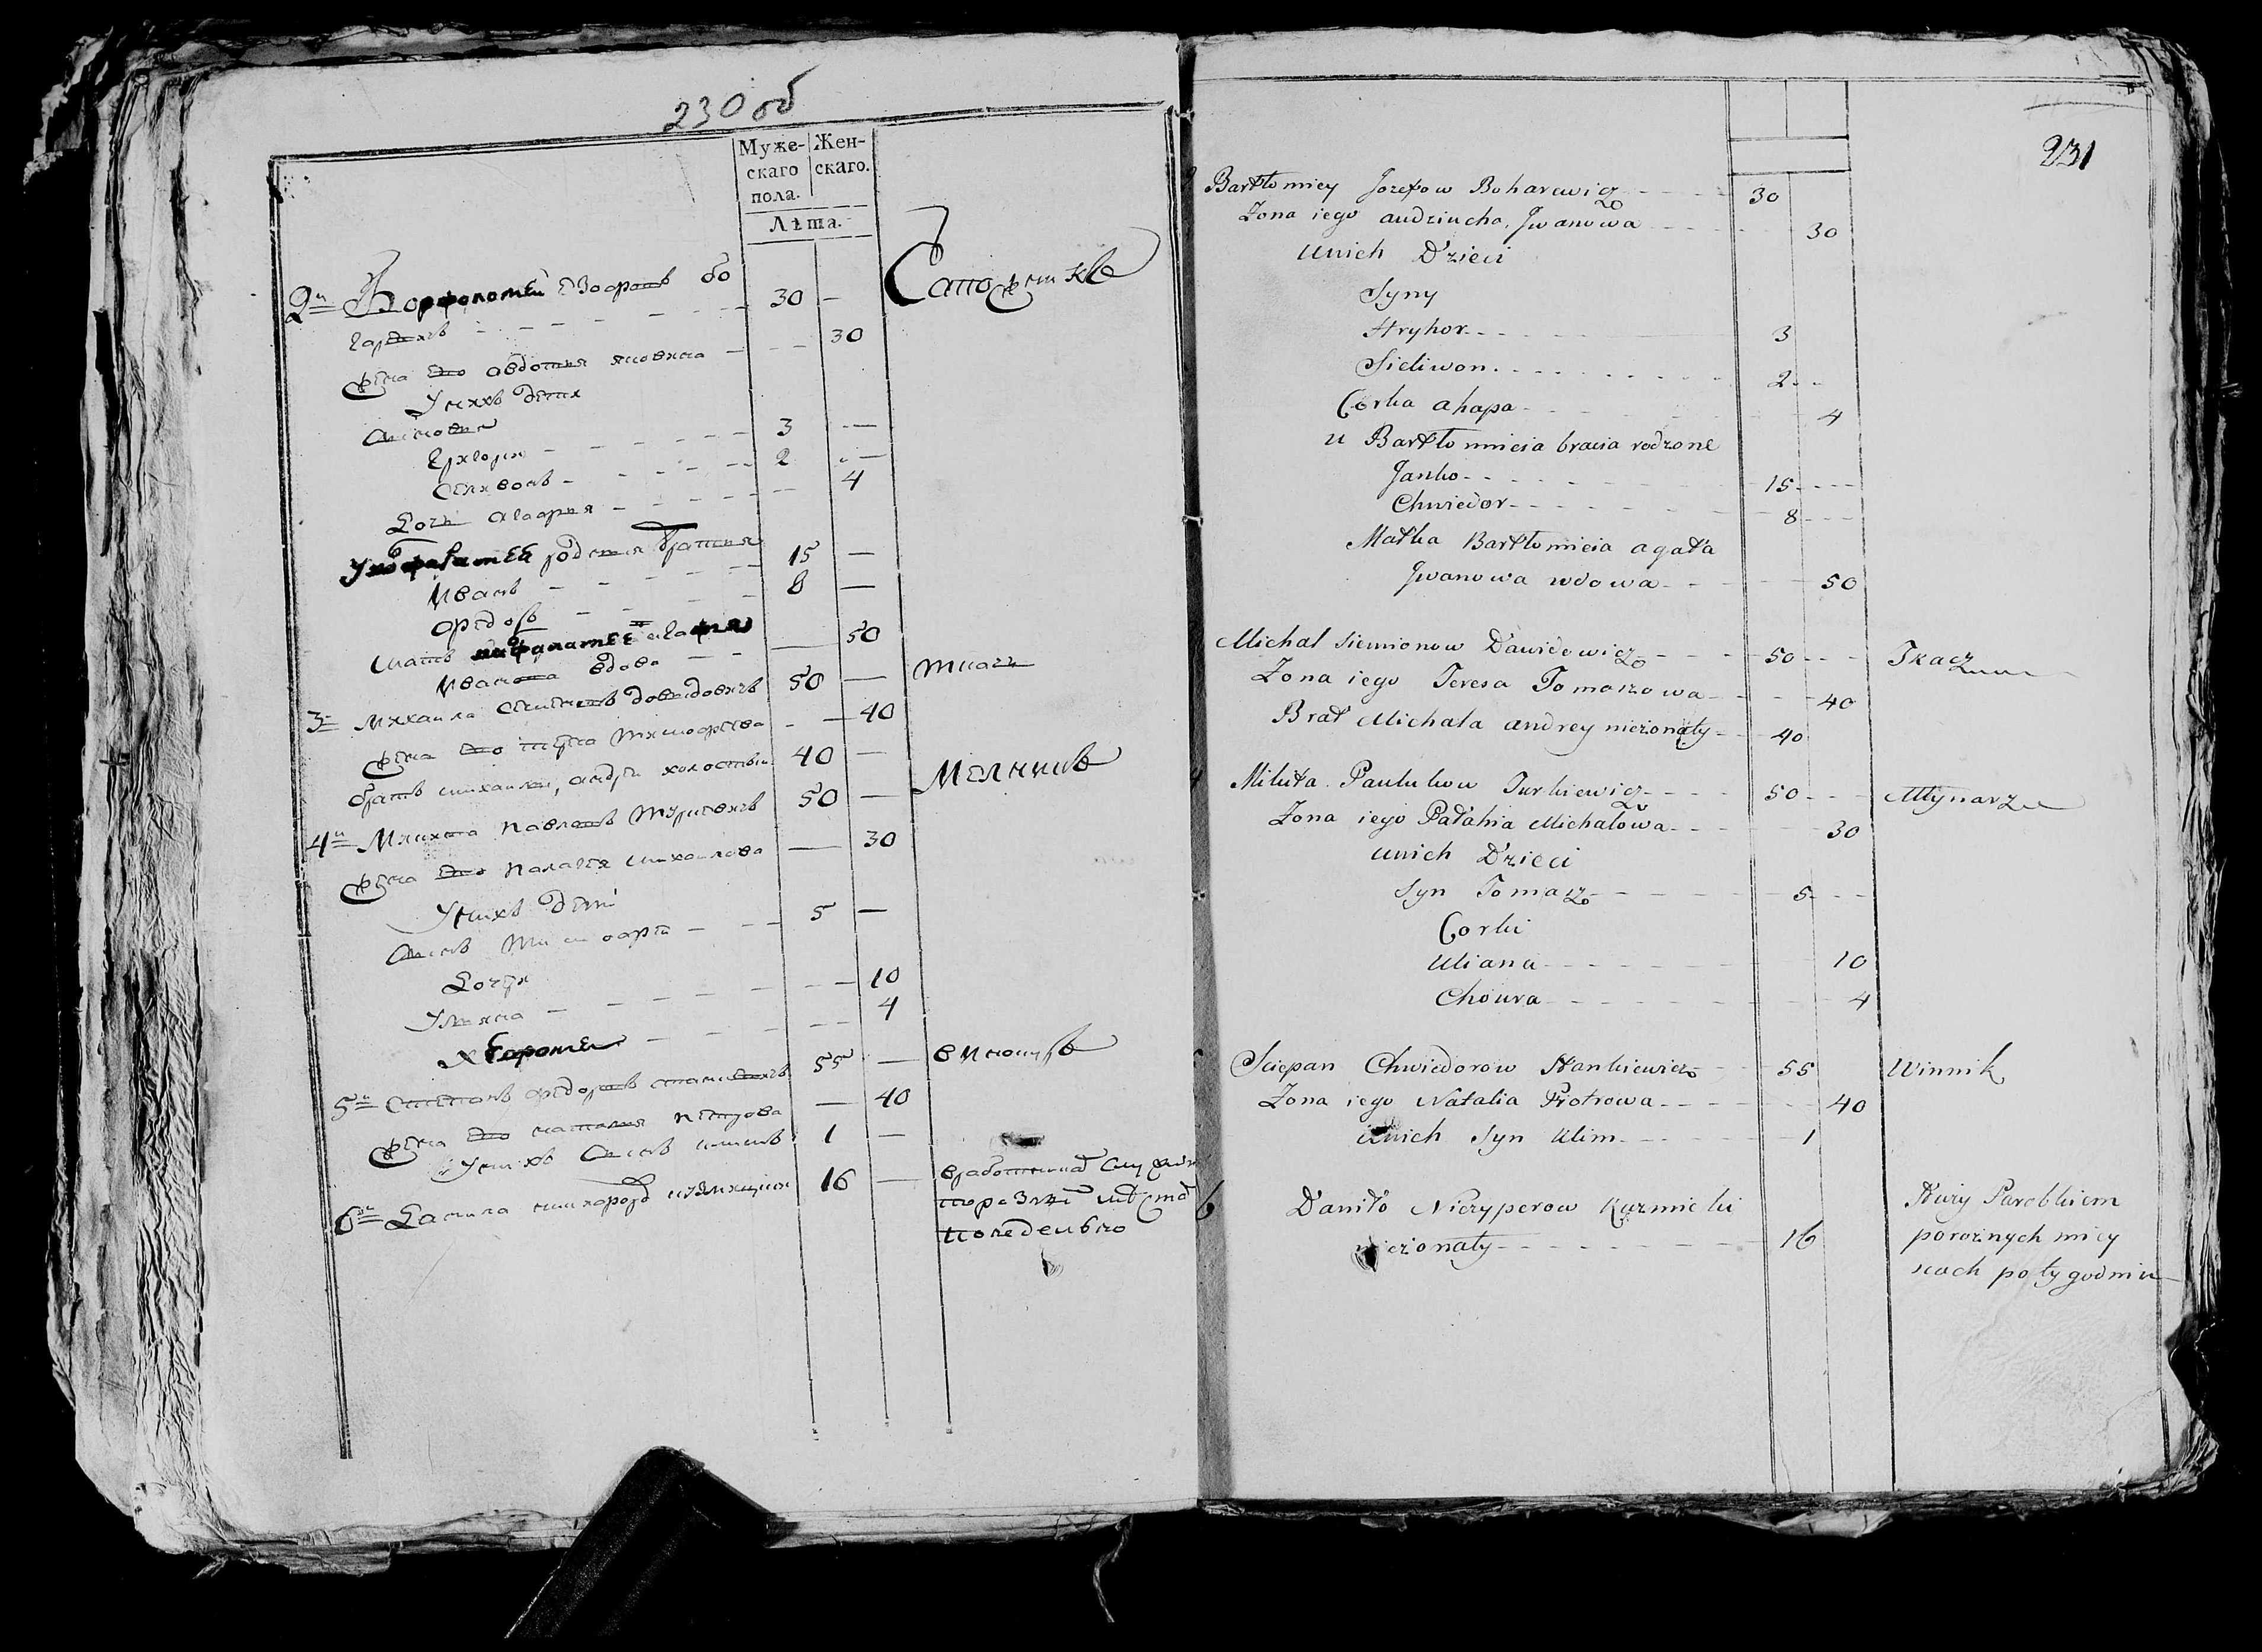 230 об
Муже- Жен-
скаго скаго.
пола.
Лѣта.
2й Ворфоломей Езофовъ бо
гаревичъ 30 — Сапожникъ
жена его авдотия яновна 30
У нихъ дети
Сыновя
Григори 3 —
Силивонъ 2 —
Дочь Агафия — 4
У родния братия
Иванъ 15 —
Федоръ 8 —
мать агафия
Иванова вдова — 50
3й Михаила Семенов Давидовичъ 50 — ткачъ
жена его Тимофеева — 40
братъ михаила, андрей холостый 40 —
4й Микита Павловъ Туркевичъ 50 — Мелникъ
жена его Палагея михаилова — 30
У нихъ дети
Сынъ Тимофей 5 —
Дочери
Уляна — 10
4
5й Степанъ Федоровъ станкевичъ 55 — винникъ
жена его наталия петрова — 40
У нихъ Сынъ климъ 1 —
6й Данила никифоров 16 —
231
Bartłomiey Jozefow Boharewicz 30
Żona iego audziucha Jwanowa 30
unich Dzieci
Syny
Hryhor 3
Sieliwon 2
Corka ahapa 4
u Bartłomieia bracia rodzone
Janko 15
Chwiedor 8
Matka Bartłomieia agata
Jwanowa wdowa 50
Michal Siemionow Dawidowicz 50 Tkacz
Żona iego Teresa Tomaszowa 40
Brat Michala andrey nieżonaty 40
4 Mikita Pawlukow Turkiewicz 50 Młynarz
Żona iego Pałahia Michałowa 30
unich Dzieci
Syn Tomasz 5
Corki
Uliana 10
Chowra 4
Sciepan Chwiedorow Stankiewicz 55 Winnik
Żona iego Natalia Piotrowa 40
unich Syn Klim 1
6 Daniło Niczyperow Kuzmicki Służy Parobkiem
nieżonaty 16 porożnych miey
scach potygodniu